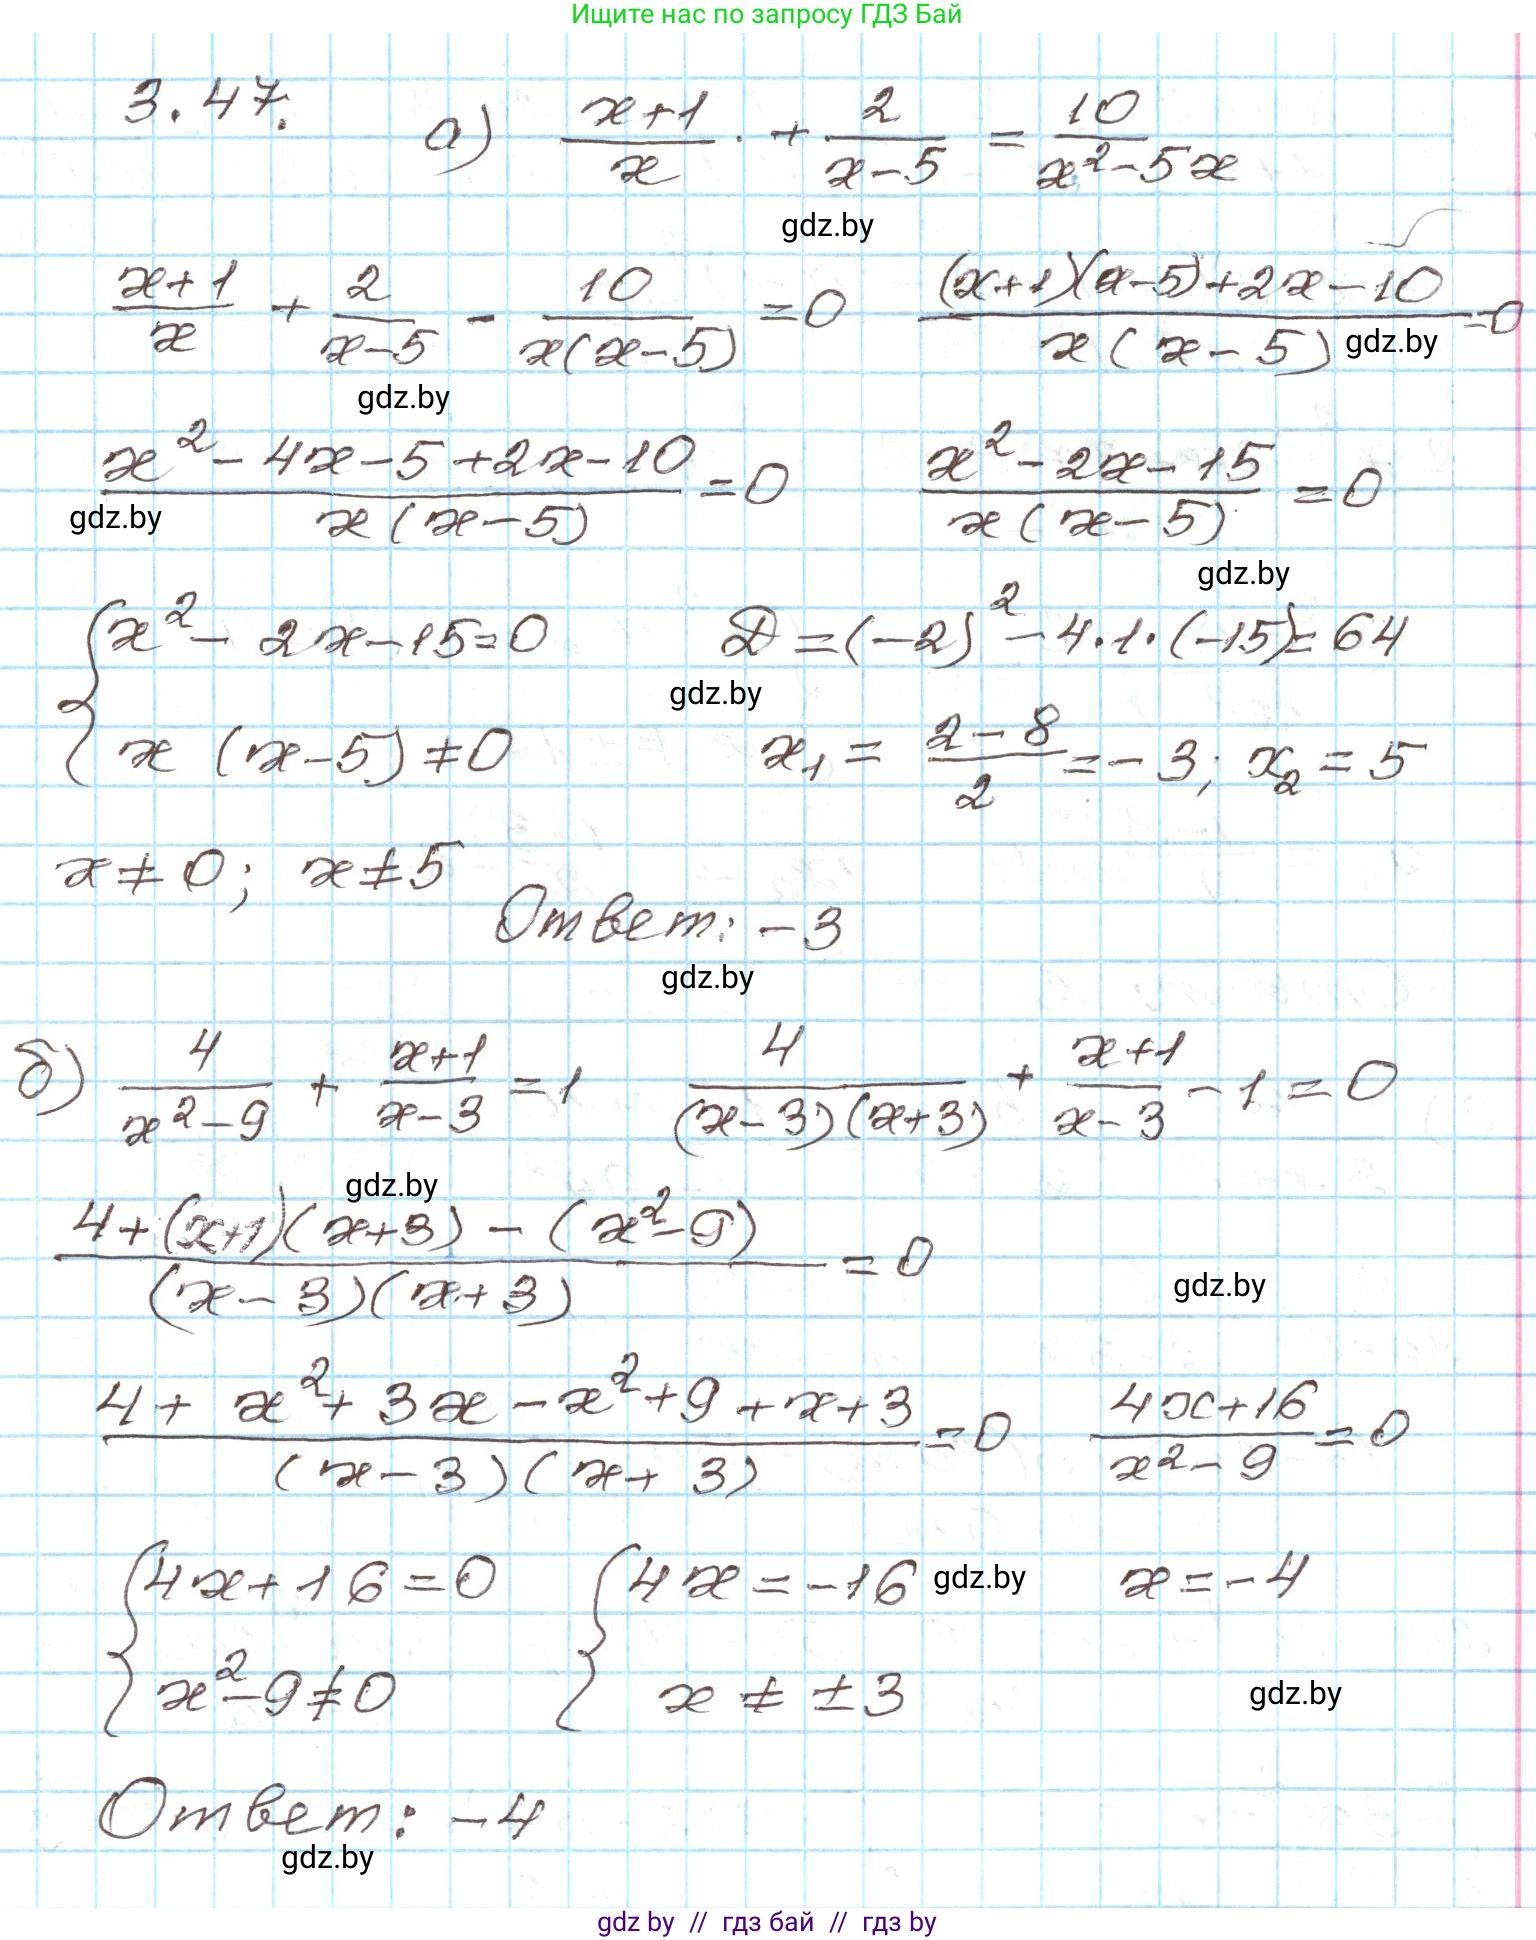 Ищите нас по запросу ГДЗ Бай
3.47. а) (x+1)/x + 2/(x-5) = 10/(x²-5x)
gdz.by
(x+1)/x + 2/(x-5) - 10/(x(x-5)) = 0 ((x+1)(x-5)+2x-10)/(x(x-5)) = 0
gdz.by
gdz.by
(x²-4x-5+2x-10)/(x(x-5)) = 0 (x²-2x-15)/(x(x-5)) = 0
gdz.by
gdz.by
{ x²-2x-15=0 D=(-2)²-4·1·(-15)=64
gdz.by
x(x-5)≠0 x₁ = (2-8)/2 = -3; x₂ = 5
x≠0; x≠5
Ответ: -3
gdz.by
б) 4/(x²-9) + (x+1)/(x-3) = 1 4/((x-3)(x+3)) + (x+1)/(x-3) - 1 = 0
gdz.by
(4+(x+1)(x+3)-(x²-9))/((x-3)(x+3)) = 0
gdz.by
(4+x²+3x-x²+9+x+3)/((x-3)(x+3)) = 0 (4x+16)/(x²-9) = 0
{ 4x+16=0 { 4x=-16 gdz.by x=-4
x²-9≠0 x≠±3 gdz.by
Ответ: -4
gdz.by
gdz by // гдз бай // гдз by